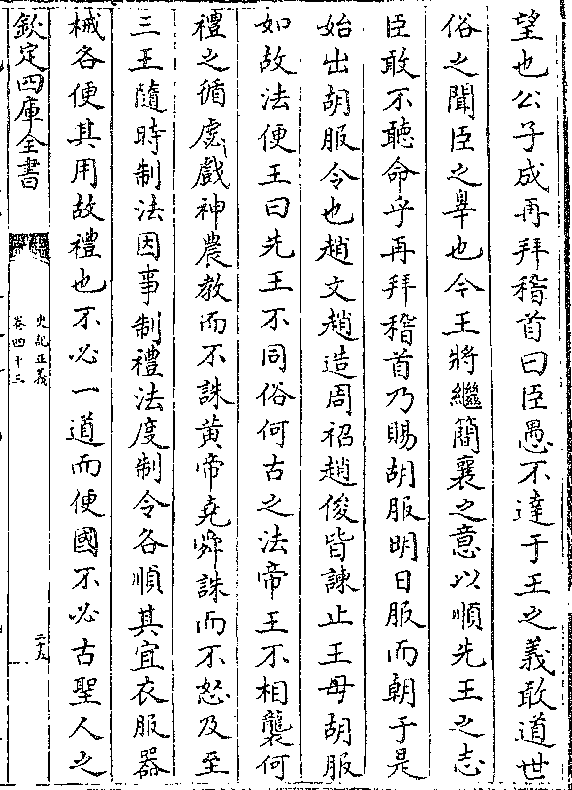 望也公子成再拜稽首曰臣愚不達于王之義敢道世
俗之聞臣之辠也今王將繼簡襄之意以順先王之志
臣敢不聽命乎再拜稽首乃賜胡服明日服而朝于是
始出胡服令也趙文趙造周袑趙俊皆諫止王毋胡服
如故法便王曰先王不同俗何古之法帝王不相襲何
禮之循虙戲神農教而不誅黄帝堯舜誅而不怒及至
三王隨時制法因事制禮法度制令各順其宜衣服器
械各便其用故禮也不必一道而便國不必古聖人之
欽定四庫全書
史記正義
卷四十三
二十九